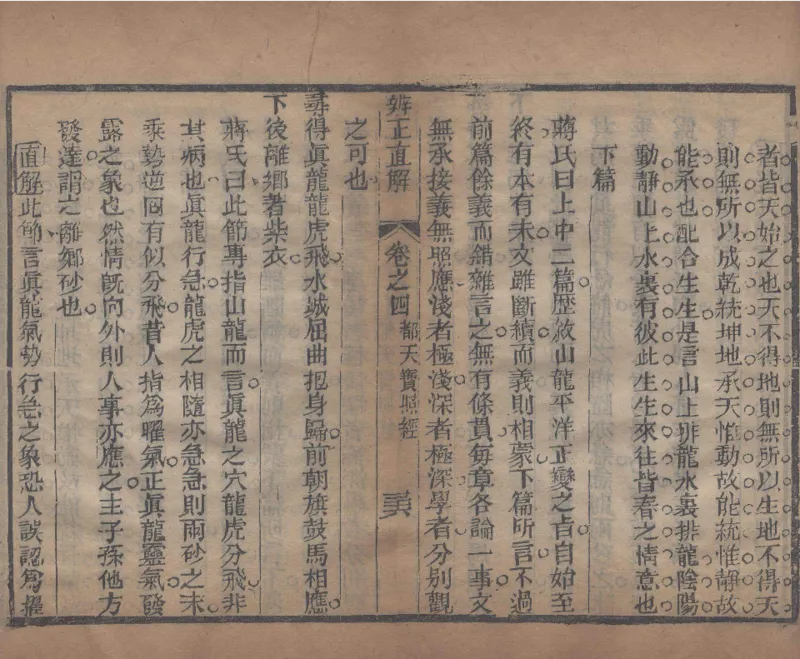 者皆天始之也天不得地則無所以生地不得天
則無所以成乾統坤地承天惟動故能統惟靜故
能承也配合生生是言山上排龍水裏排龍陰陽
動靜山上水裏有彼此生生來往皆春之情意也
下篇
蔣氏曰上中二篇歷敘山龍平洋正變之旨自始至
終有本有末文雖斷續而義則相蒙下篇所言不過
前篇餘義而錯雜言之無有條貫每章各論一事文
無承接義無照應淺者極淺深者極深學者分別觀
辨正直解
卷之四都天寶照經
之可也
尋得眞龍龍虎飛水城屈曲抱身歸前朝旗鼓馬相應
下後離鄉著紫衣
蔣氏曰此節專指山龍而言眞龍之穴龍虎分飛非
其病也眞龍行急龍虎之相隨亦急急則兩砂之末
乘勢逆回有似分飛昔人指爲曜氣正眞龍靈氣發
露之象也然情旣向外則人事亦應之主子孫他方
發達謂之離鄉砂也
直解此節言眞龍氣勢行急之象恐人誤認爲擺